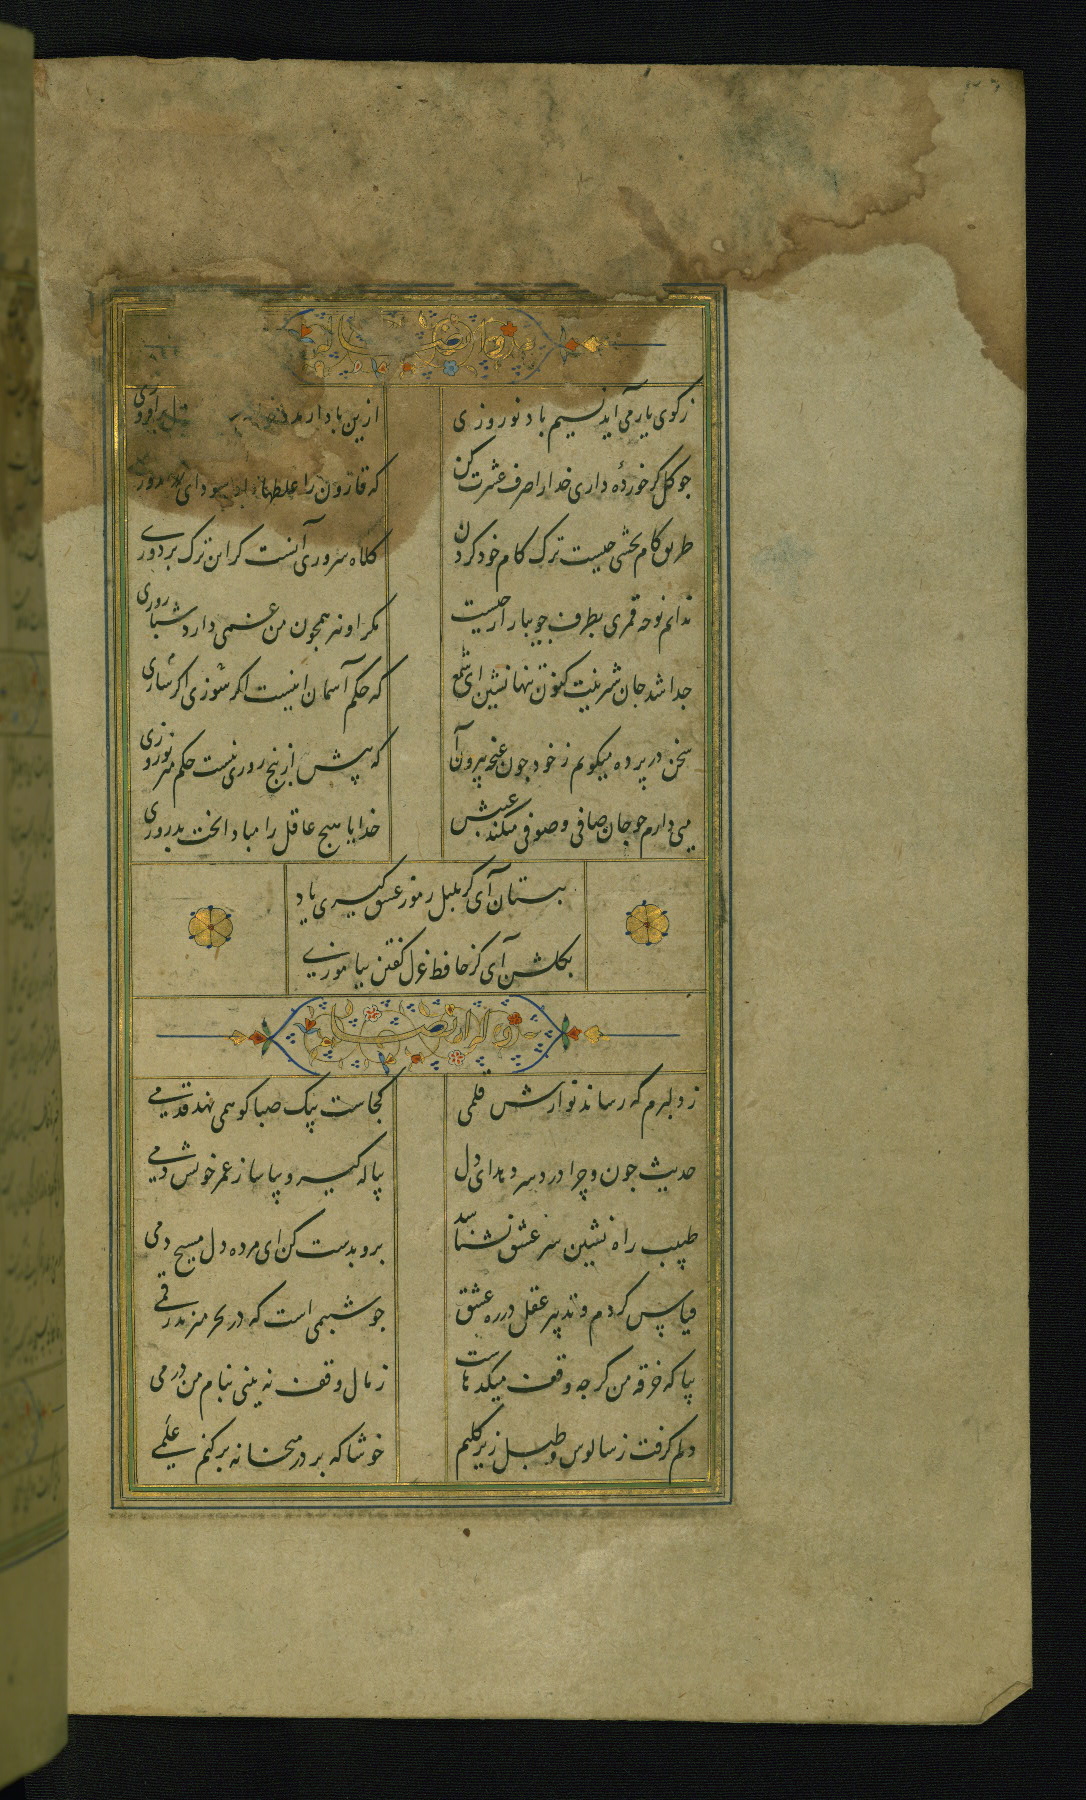 وله ایضا
زکوی یار می آید نسیم باد نوروزی
ازین باد ار مدد خواهی چراغ دل برافروزی
جو کل کر خوردهٔ داری خدا را صرف عشرت کن
که قارون را غلطها داد سودای زر اندوزی
طریق کام بخشی جیست ترک کام خود کردن
کلاه سروری آنست کر این ترک بردوزی
ندانم نوحه قمری بطرف جویبار از جیست
مکر او نیز همجون من غمی دارد شبا روزی
جدا شد جان شیرینت کنون تنها نشین ای شمع
که حکم آسمان اینست اکر سوزی اکر سازی
سخن در پرده میکویم ز خود جون غنچه بیرون آی
که بیش از پنج روزی نیست حکم میر نوروزی
میی دارم جو جان صافی و صوفی میکند عیبش
خدایا هیچ عاقل را مبادا بخت بد روزی
ببستان آی کز بلبل رموز عشق کیری یاد
بکلشن آی کز حافظ غزل کفتن بیاموزی
وله ایضا
ز دلبرم که رساند نوازش قلمی
کجاست پیک صبا کو همی نهد قدمی
حدیث جون و چرا درد سر دهد ای دل
پیاله کیر و بیاسا ز عمر خویش دمی
طبیب راه نشین سر عشق نشناسد
برو بدست کن ای مرده دل مسیح دمی
قیاس کردم و تدبیر عقل در ره عشق
جو شبنمی است که در بحر میزند رقمی
بیا که خرقه من کر جه وقف میکدهاست
ز مال وقف نه بینی بنام من درمی
دلم کرفت ز سالوس و طبل زیر کلیم
خوشا که بر در میخانه بر کنم علمی